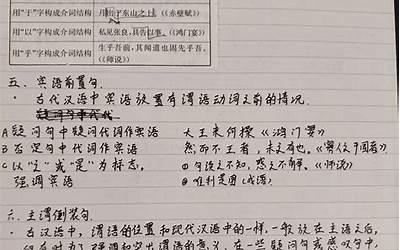 用"于"字构成介词结构 月出于东山之上。(《赤壁赋》)
用"以"字构成介词结构 私见张良,具告以事。(《鸿门宴》)
用"乎"字构成介词结构 生乎吾前,其闻道也固先乎吾。(《师说》)
五、宾语前置句.
· 古代汉语中宾语放置有谓语动词之前的情况.
A 疑问句中疑问代词作宾语 大王来何操《鸿门宴》
B 否定句中代词作宾语 然而不王者,未之有也。《寡人之于国者》
C 以"之"或"是"为标志。 ①句读之不知,惑之不解。《师说》
强调宾语 ②唯利是图(成语)
六、主谓倒装句.
· 古汉语中,谓语的位置和现代汉语中的一样,一般放在主语之后,
但有时为了强调和突出谓语的意义,在一些疑问句或感叹句中,